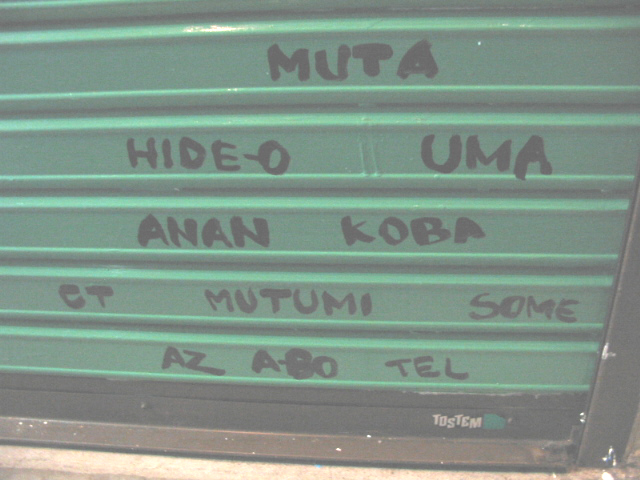 MUTA
HIDE-O UMA
ANAN KOBA
ET MUTUMI SOME
AZ A-BO TEL
TOSTEM